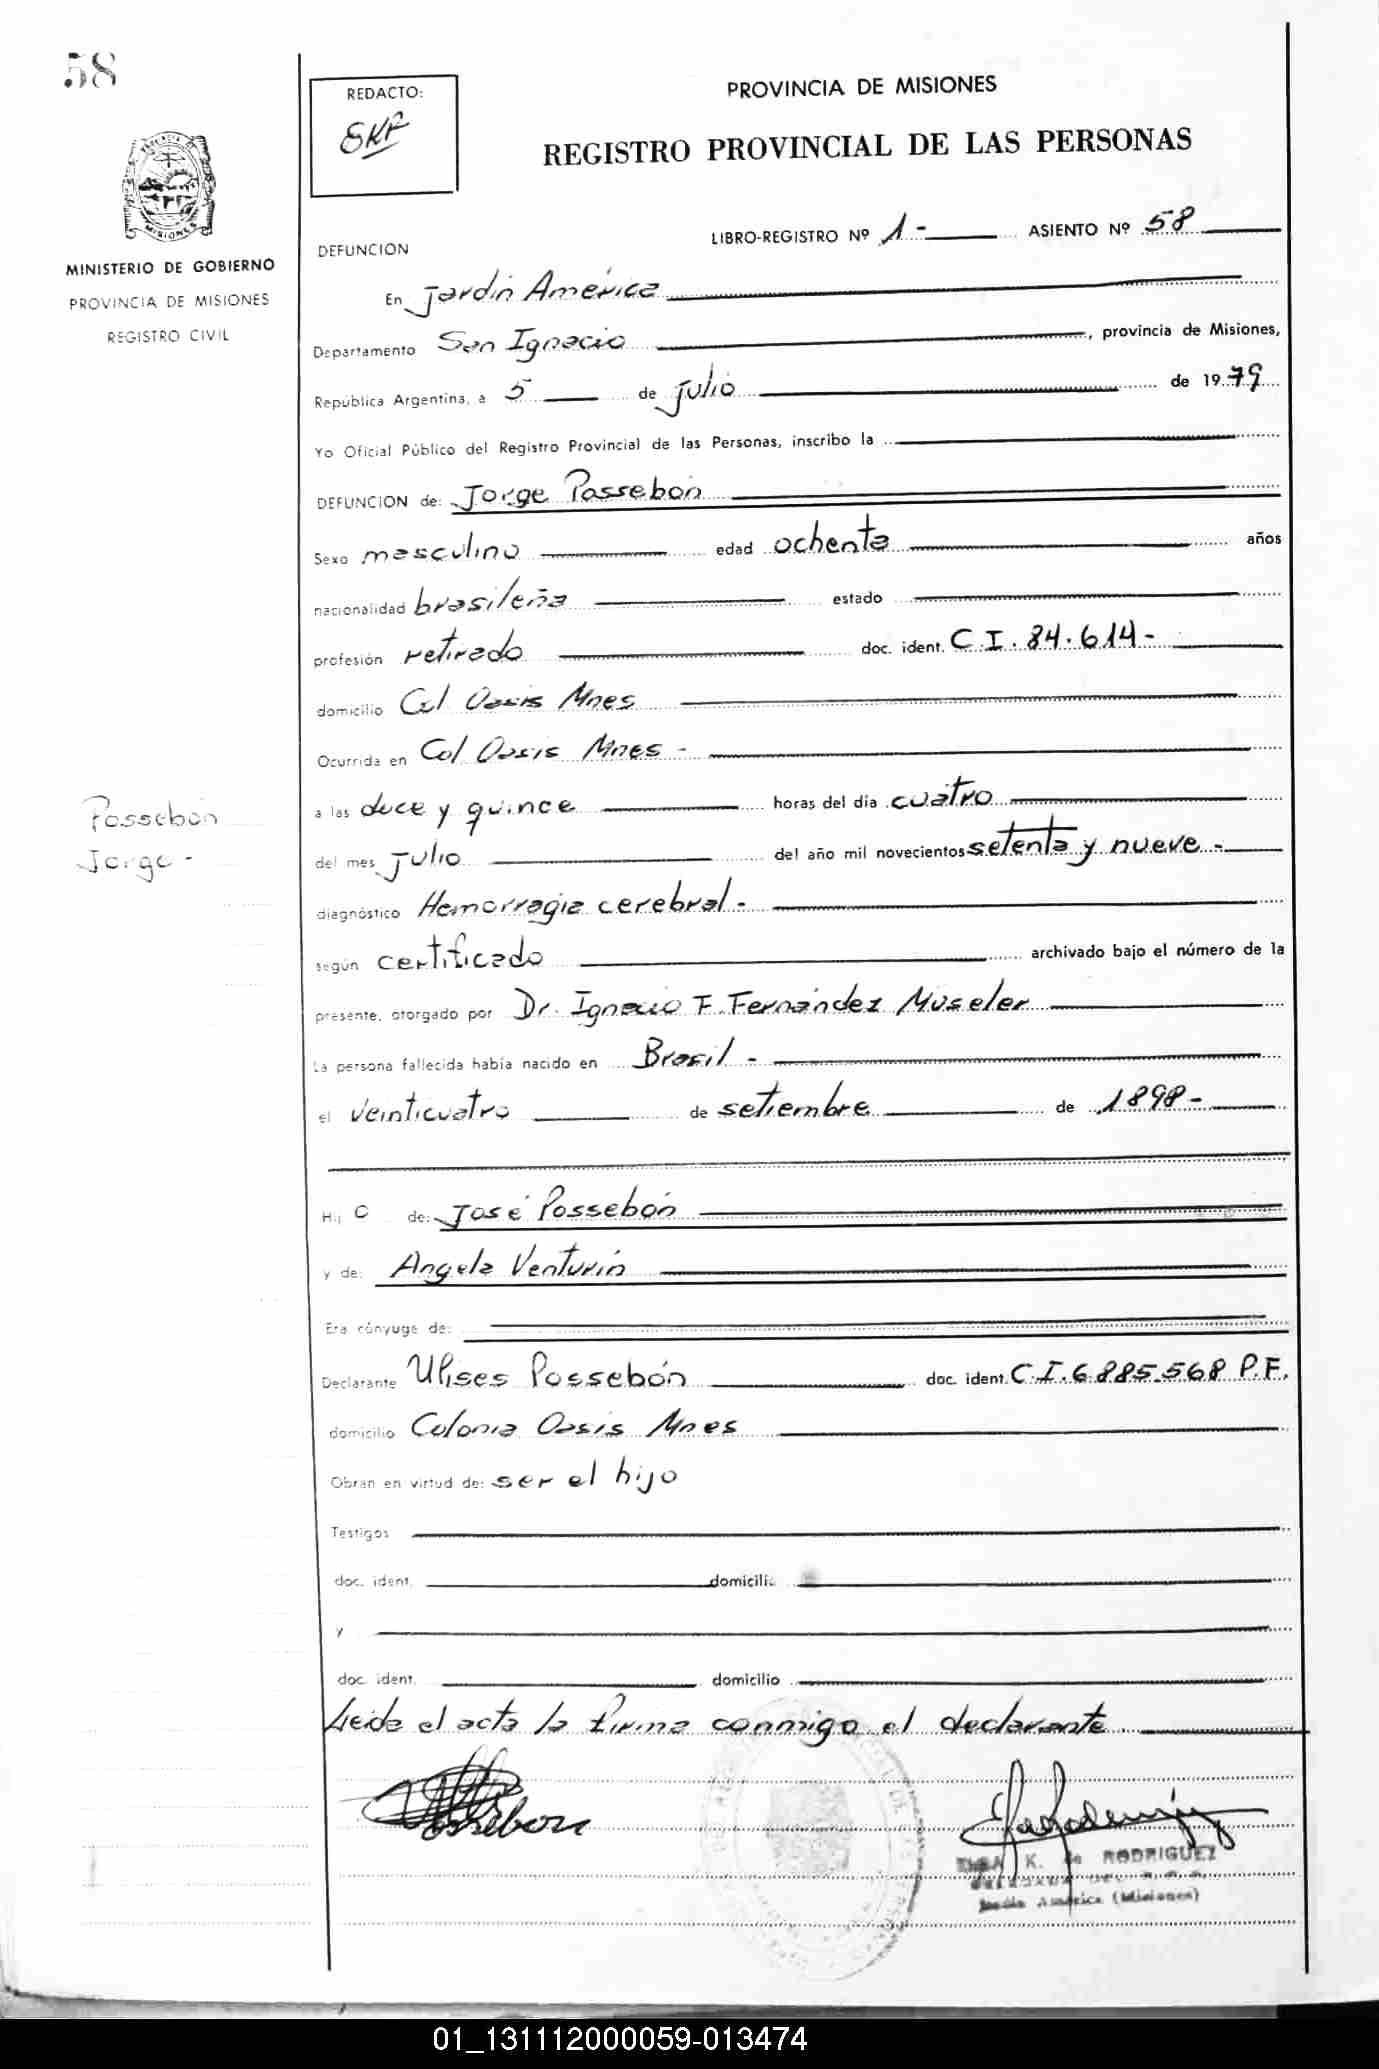 58
REDACTO:
PROVINCIA DE MISIONES
REGISTRO PROVINCIAL DE LAS PERSONAS
LIBRO-REGISTRO Nº 1- ASIENTO Nº 58
DEFUNCION
MINISTERIO DE GOBIERNO
PROVINCIA DE MISIONES
REGISTRO CIVIL
En Jardin América
Departamento San Ignacio, provincia de Misiones,
República Argentina, a 5 de julio de 1979
Yo Oficial Público del Registro Provincial de las Personas, inscribo la
DEFUNCION de: Jorge Possebón
Sexo masculino edad ochenta años
nacionalidad brasileña estado
profesión retirado doc. ident. C.I. 84.614-
domicilio Col Oasis Mnes
Ocurrida en Col Oasis Mnes -
a las doce y quince horas del día cuatro
del mes julio del año mil novecientos setenta y nueve -
Possebón
Jorge -
diagnóstico Hemorragia cerebral -
según certificado archivado bajo el número de la
presente, otorgado por Dr. Ignacio F. Fernández Müseler
La persona fallecida había nacido en Brasil -
el veinticuatro de setiembre de 1898-
Hijo de: José Possebón
y de: Angela Venturin
Era cónyuge de:
Declarante Ulises Possebón doc. ident. C.I. 6.885.568 P.F.
domicilio Colonia Oasis Mnes
Obran en virtud de: ser el hijo
Testigos
doc. ident. domicilio
y
doc. ident. domicilio
Leida el acta la firma conmigo el declarante
K. de RODRIGUEZ
Jardín América (Misiones)
01_131112000059-013474